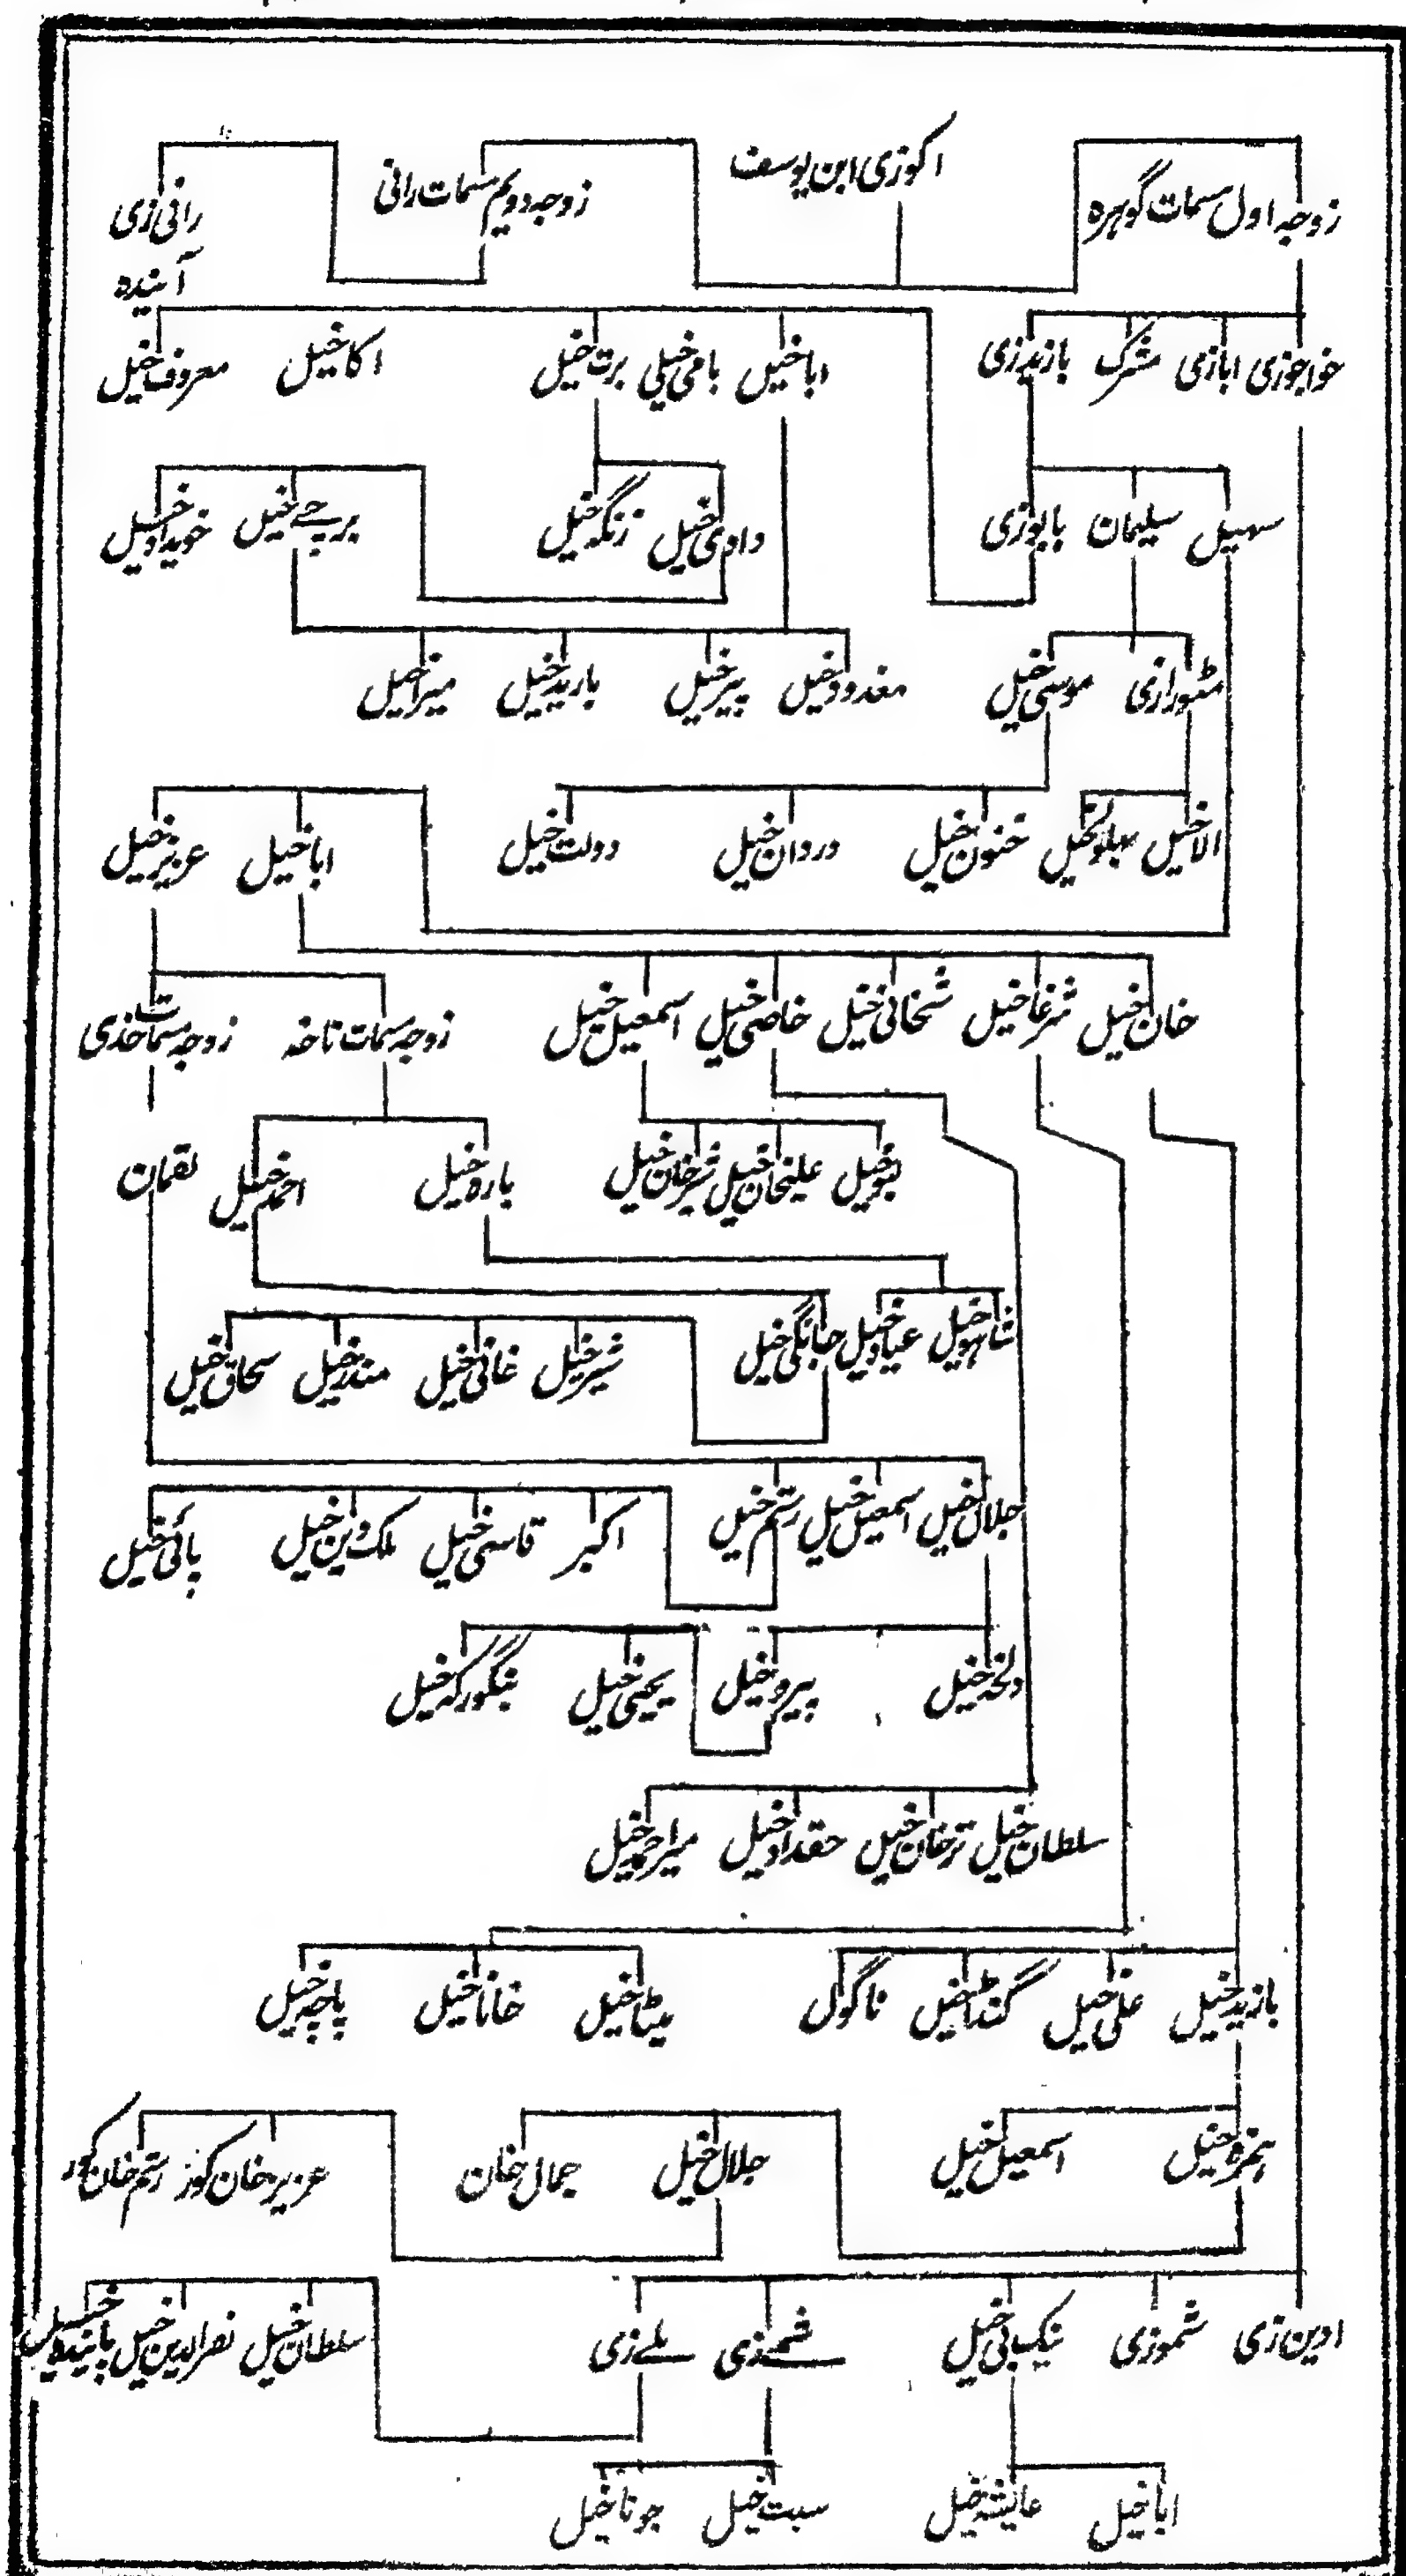 اکوزی ابن یوسف
زوجہ اول سمات گوہرہ زوجہ دویم سمات رانی رانی زی
آئندہ
خواجوزی ابازی مشرک بازیدزی اباخیل بامی خیل برت خیل اکاخیل معروف خیل
سہیل سلیمان بابوزی دادی خیل زنگہ خیل برجے خیل خویدادخیل
مٹورازی موسی خیل معدودخیل پیرخیل باریدخیل میراخیل
الاخیل بہلولخیل خنون خیل دردان خیل دولت خیل اباخیل عزیزخیل
خان خیل شرغاخیل شخانی خیل خاصی خیل اسمعیل خیل زوجہ سمات ناخہ زوجہ سمات خذی
بتوخیل علیخان خیل شیرخان خیل بارہ خیل احمدخیل لقمان
شاہوخیل عیادخیل جانگی خیل شیرخیل غانی خیل مندرخیل سحاق خیل
جلال خیل اسمعیل خیل رستم خیل اکبر قاسمی خیل ملک دین خیل پائی خیل
دلخہ خیل پیروخیل یحیی خیل بنگورکہ خیل
سلطان خیل ترخان خیل حقدادخیل میراحمدخیل
بازیدخیل علی خیل گنڈاخیل ناگول میٹاخیل خاناخیل پاچہ خیل
ہمزہ خیل اسمعیل خیل جلال خیل جمال خان عزیزخان کور رستم خان کور
ادین زی شموزی نیک بی خیل شمے زی ملے زی سلطان خیل نصرالدین خیل پایندہ خیل
اباخیل عایشہ خیل سبت خیل جوناخیل